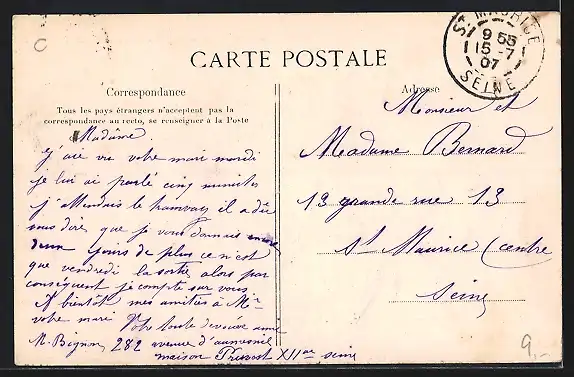 C
CARTE POSTALE
ST MAURICE
9 55
15 -7
07
SEINE
Correspondance
Tous les pays étrangers n'acceptent pas la
correspondance au recto, se renseigner à la Poste
Madame.
J'ait vu votre mari mardi
je lui ai parlé cinq minutes
j'attendais le tramway il a dû
vous dire que je vous donnais encore
deux jours de plus ce n'est
que vendredi la sortie alors par
conséquent je compte sur vous
A bientôt mes amitiés à Mr
votre mari Votre toute dévouée amie
M. Bignon, 282 avenue d'aumesnil
maison Prevost XIIme seine
Adresse
Monsieur et
Madame Bernard
13 grande rue 13
St Maurice (centre
Seine
9.-